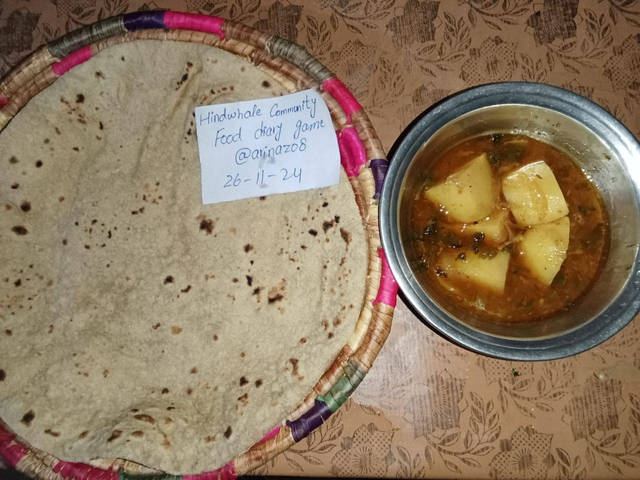 Hindwhale Community
Food diary game
@arinaz08
26-11-24